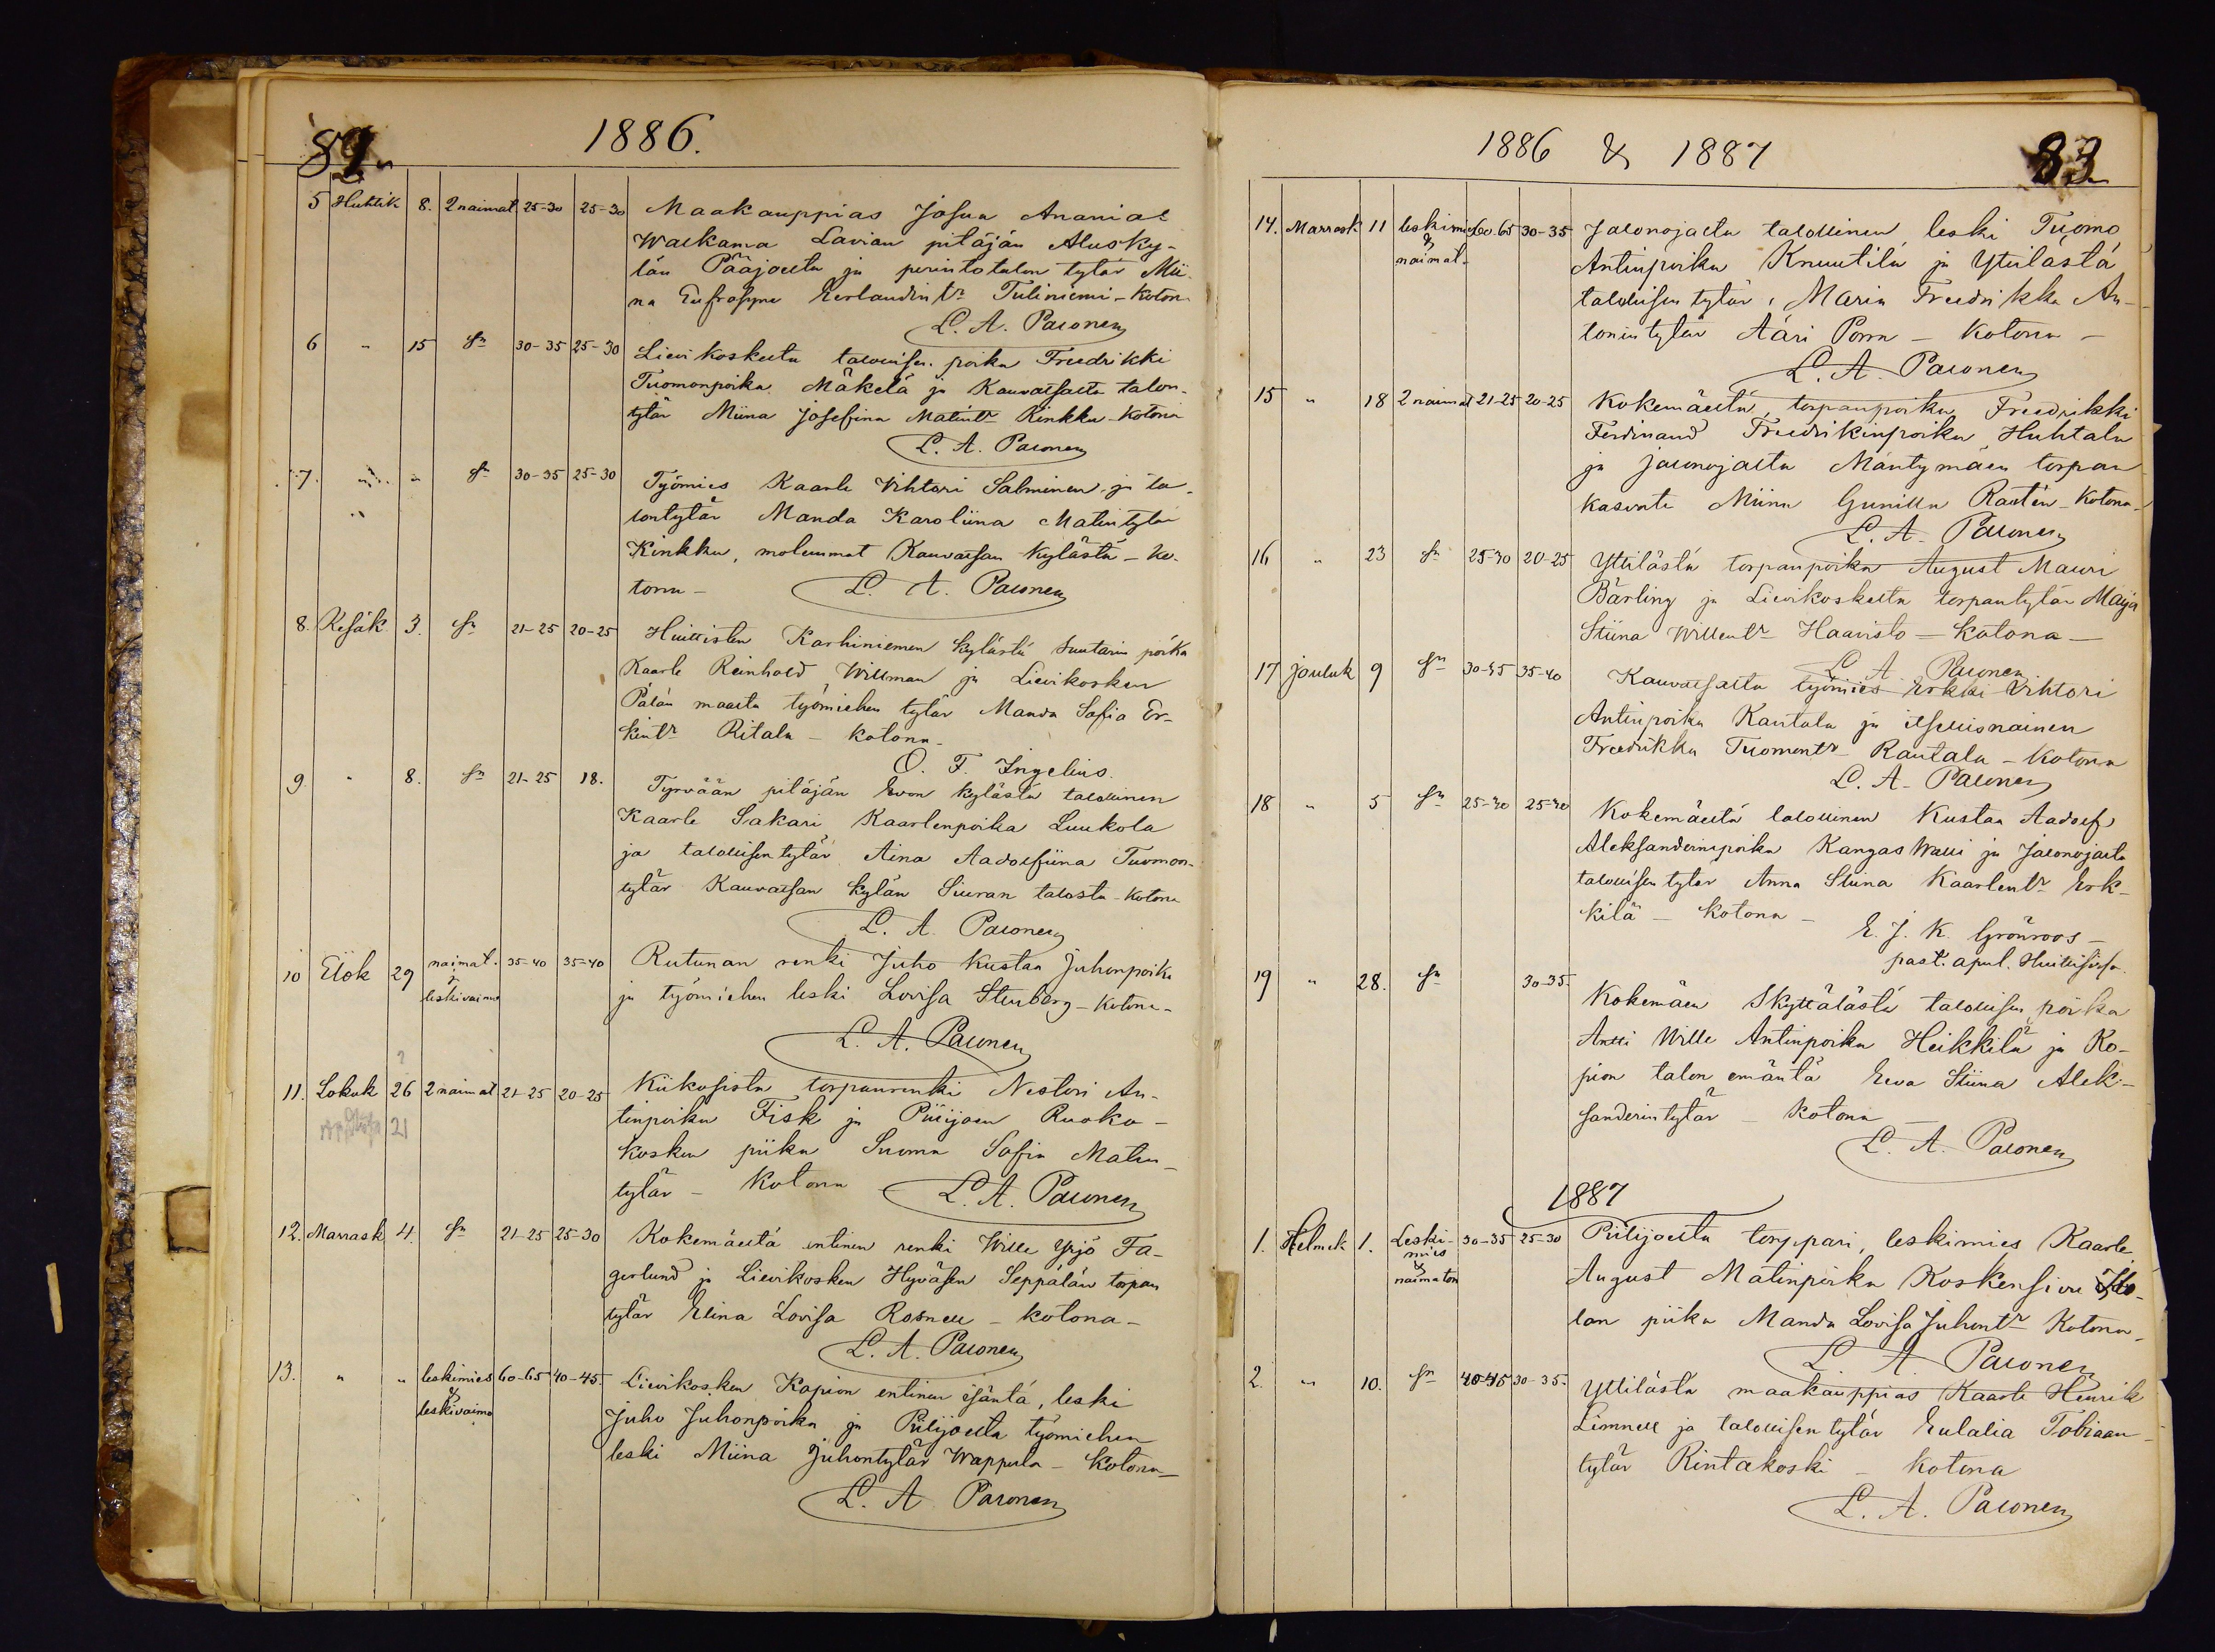 82.
1886.
5 Huhtik 8. 2 naimat. 25-30 25-30 Maakauppias Josua Ananias
Walkama Lavian pitäjän Alusky-
län Pääjoelta ja perintotalon tytär Mii-
na Eufrosyne Eerlandintr Tuliniemi - Koton.
L. A. Palonen
6 " 15 Sn 30-35 25-30 Lievikoskelta talollisen poika Freedrikki
Tuomonpoika Mäkelä ja Kauvatsalta talon-
tytär Miina Josefina Matintr Kinkku - Kotona
L. A. Palonen
7. " " Sn 30-35 25-30 Työmies Kaarle Vihtori Salminen ja ta-
lontytär Manda Karoliina Matintytär
Kinkku, molemmat Kauvatsan kylästä - ko-
tona - L. A. Palonen
8. Kesäk 3. Sn 21-25 20-25 Huittisten Karhiniemen kylästä suutarin poika
Kaarle Reinhold Willman ja Lievikosken
Pälän maalta työmiehen tytär Manda Sofia Er-
kintr Ritala - kotona -
O. F. Ingelius.
9. " 8. Sn 21-25 18. Tyrvään pitäjän Evon kylästä talollinen
Kaarle Sakari Kaarlenpoika Luukola
ja talollisen tytär Aina Aadolfiina Tuomon-
tytär Kauvatsan kylän Siuran talosta - Kotona
L. A. Palonen
10 Elok 29 naimat. & leskivaimo 35-40 35-40 Rutunan renki Juho Kustaa Juhonpoika
ja työmiehen leski Lovisa Stenberg - Kotona -
L. A. Palonen
?
11. Lokuk 26 2 naimat 21-25 20-25 Kiikosista torpanrenki Nestori An-
21
tinpoika Fisk ja Piilijoen Ruoko-
kosken piika Suoma Sofia Matin-
tytär - Kotona L. A. Palonen
12. Marrask 4. Sn 21-25 25-30 Kokemäeltä entinen renki Wille Yrjö Fa-
gerlund ja Lievikosken Hyväsen Seppälän torpan
tytär Elina Lovisa Rosnell - kotona -
L. A. Palonen
13. " " leskimies & leskivaimo 60-65 40-45. Lievikosken Kapion entinen isäntä, leski
Juho Juhonpoika ja Piilijoelta työmiehen
leski Miina Juhontytär Wappula - Kotona -
L. A. Palonen
1886 & 1887
83
14. Marrask 11 leskimies & naimat. 60.65 30-35 Jalonojalta talollinen leski Tuomo
Antinpoika Knuutila ja Yttilästä
talollisen tytär, Maria Freedrikka An-
tonintytär Ääri Porra - Kotona -
L. A. Palonen
15 " 18 2 naimat 21-25 20-25 Kokemäeltä, torpanpoika Freedrikki
Ferdinand Freedrikinpoika Huhtala
ja Jalonojalta Mäntymäen torpan
kasvate Miina Gunilla Rautén - Kotona -
L. A. Palonen
16 " 23 Sn 25-30 20-25 Yttilästä torpanpoika August Mauri
Bärling ja Lievikoskelta torpantytär Maija
Stiina Willentr Haavisto - Kotona -
L. A. Palonen
17 Jouluk 9 Sn 30-35 35-40 Kauvatsalta työmies Erkki Vihtori
Antinpoika Rautala ja itsellisnainen
Freedrikka Tuomontr Rautala - Kotona
L. A. Palonen
18 " 5 Sn 25-30 25-30 Kokemäeltä talollinen Kustaa Aadolf
Aleksanderinpoika Kangas Walli ja Jalonojalta
talollisen tytär Anna Stiina Kaarlentr Erk-
kilä - Kotona -
E. J. K. Grönroos -
past. apul. Huittisissa.
19 " 28. Sn 30-35. Kokemäen Skyttälästä talollisen poika
Antti Wille Antinpoika Heikkilä ja Ko-
pion talon emäntä Eeva Stiina Alek-
sanderintytär - Kotona -
L. A. Palonen
1887
1. Helmik 1. Leski-mies & naimaton 30-35 25-30 Piilijoelta torppari, leskimies Kaarle
August Matinpoika Koskensivu
lan piika Manda Lovisa Juhontr Kotona -
L. A. Palonen
2. " 10. Sn 40-45 30-35. Yttilästä maakauppias Kaarle Henrik
Limnell ja talollisen tytär Eulalia Tobiaan-
tytär Rintakoski - Kotona
L. A. Palonen